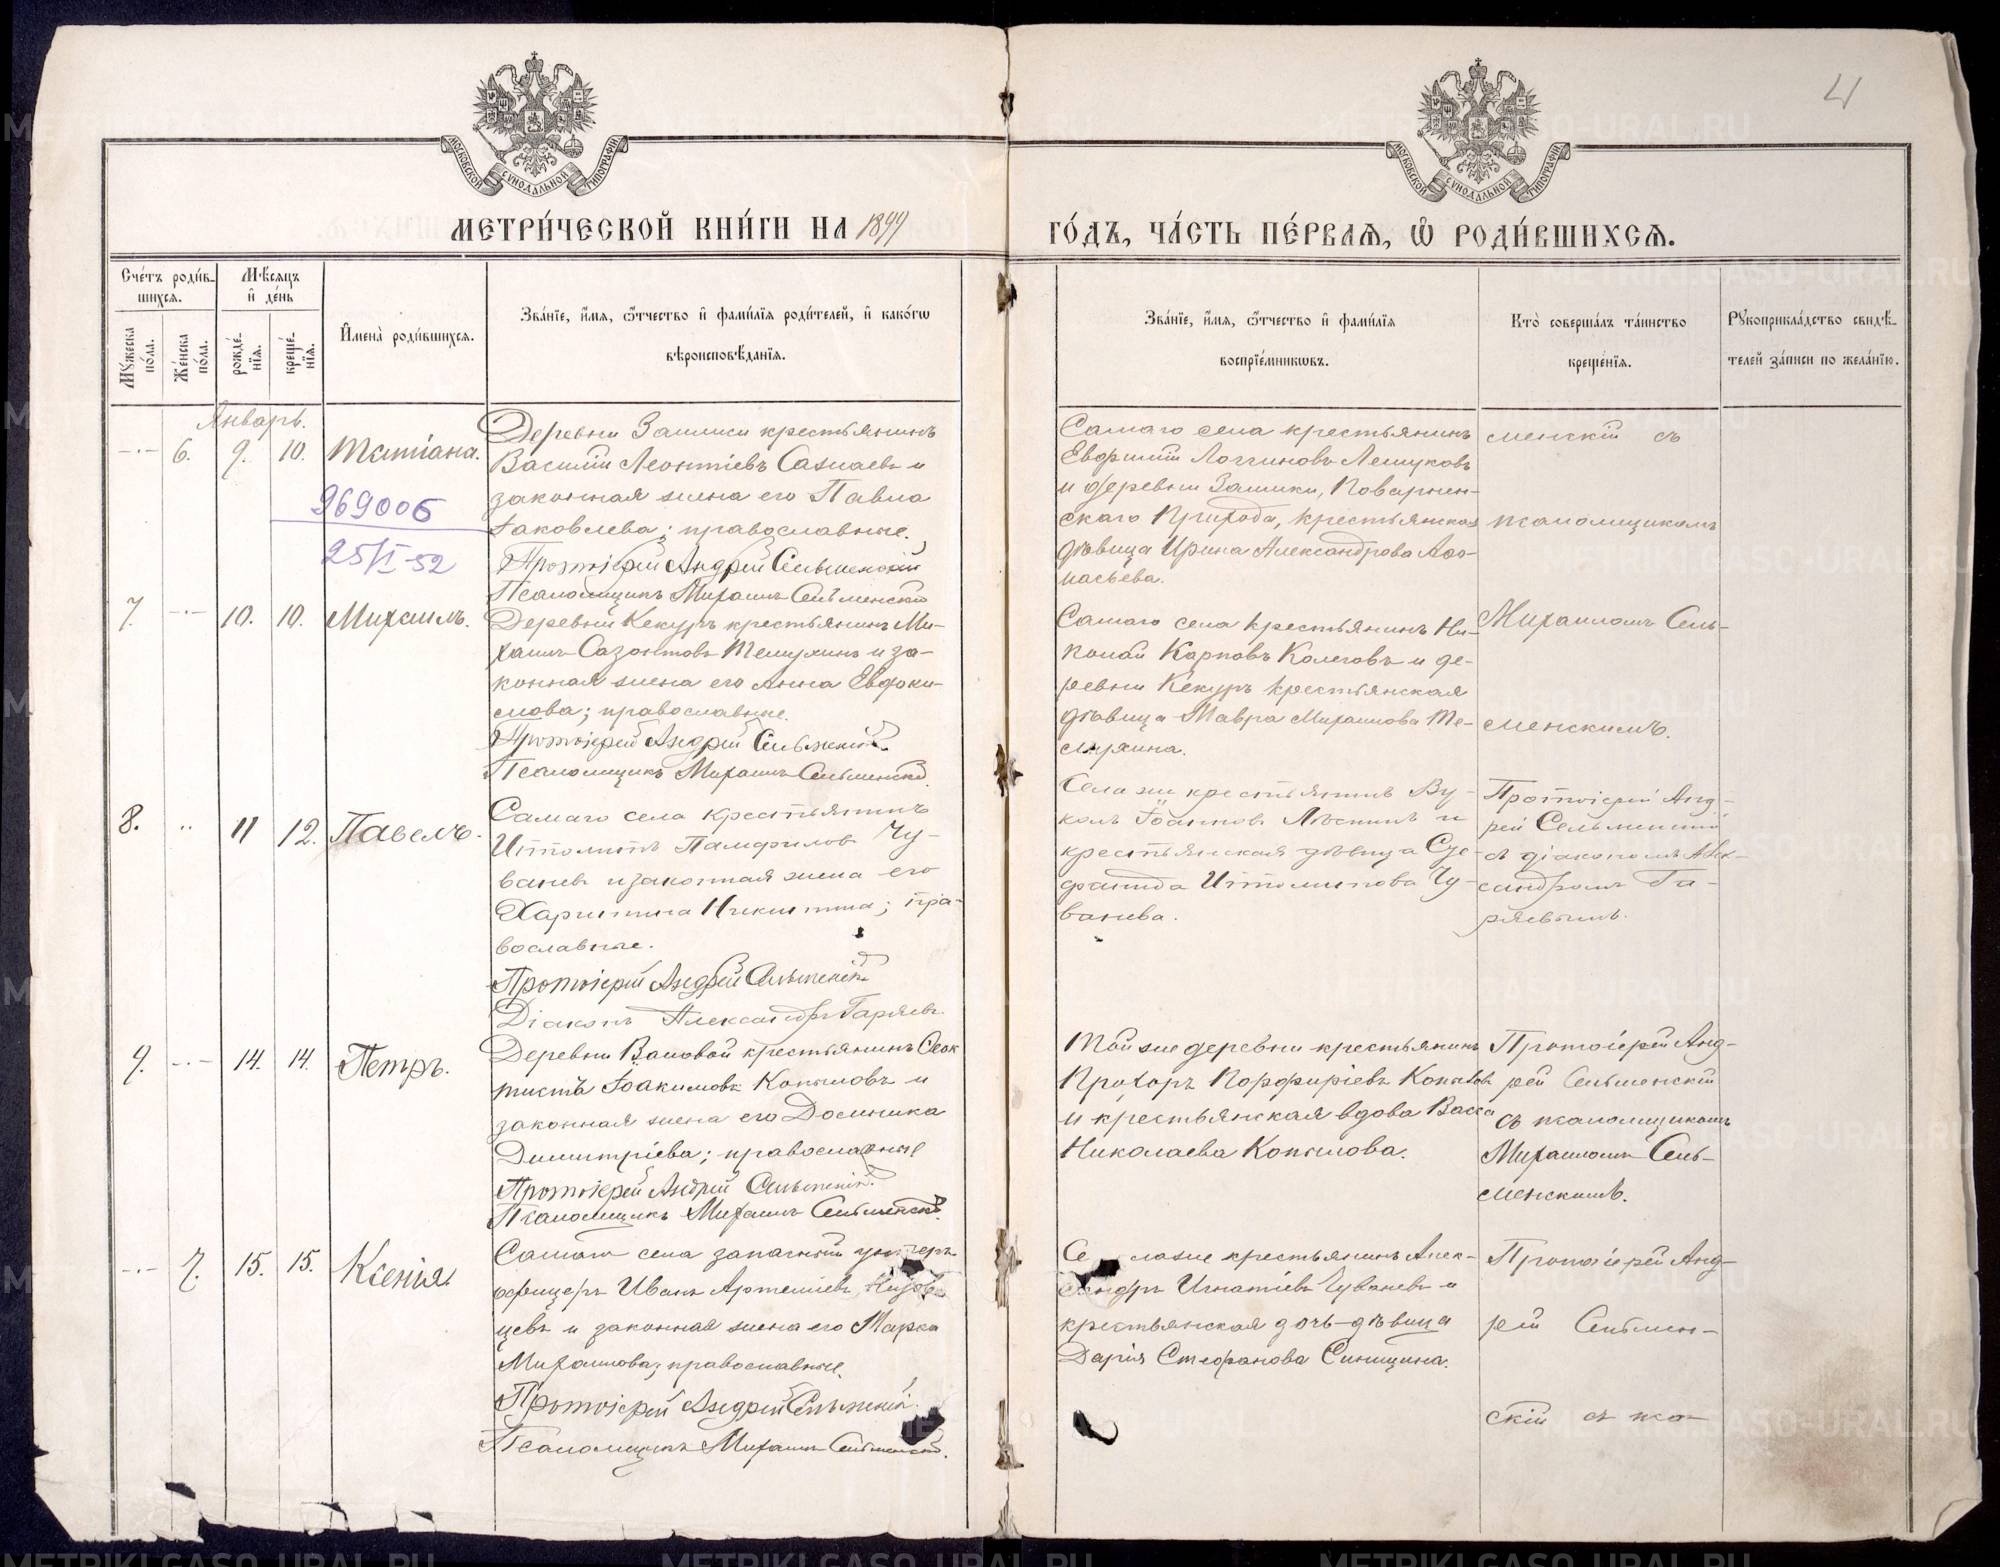 4
МОСКОВСКОЙ СѴНОДАЛЬНОЙ ТИПОГРАФІИ
МОСКОВСКОЙ СѴНОДАЛЬНОЙ ТИПОГРАФІИ
МЕТРИ́ЧЕСКОЙ КНИ́ГИ НА 1899
ГО́ДЪ, ЧА́СТЬ ПЕ́РВАЯ, Ѡ҆ РОДИ́ВШИХСѦ.
Сче́тъ роди́в-
шихсѧ.
Мѣ́сѧцъ
и҆ де́нь
Мꙋ́жеска по́ла.
Же́нска по́ла.
рожде́-нїѧ.
креще́-нїѧ.
И҆мена̀ роди́вшихсѧ.
Зва́нїе, и҆́мѧ, ѻ҆́тчество и҆ фами́лїѧ роди́телей, и҆ како́гѡ
вѣроисповѣ́данїѧ.
Зва́нїе, и҆́мѧ, ѻ҆́тчество и҆ фами́лїѧ
воспрїе́мникѡвъ.
Кто̀ соверша́лъ та́инство
креще́нїѧ.
Рꙋкоприкла́дство свидѣ́-
телей за́писи по жела́нїю.
Январь.
6. 9. 10. Татіана.
Деревни крестьянинъ
Василій Леонтіевъ и
законная жена его Павла
Іаковлева; православные.
Протоіерей Андрей Сельменскій
Псаломщикъ Михаилъ Сельменскій
969006
25/I-52
Самаго села крестьянинъ
Евфимій Логгиновъ Лешуковъ
и деревни
скаго Прихода, крестьянская
дѣвица Ирина Александрова Аѳо-
насьева.
менскій съ
псаломщикомъ
7. 10. 10. Михаилъ.
Деревни Кекуръ крестьянинъ Ми-
хаилъ Сазонтовъ и за-
конная жена его Анна Евфоки-
мова; православные.
Протоіерей Андрей Сельменскій
Псаломщикъ Михаилъ Сельменскій
Самаго села крестьянинъ Ни-
колай Карповъ Колеговъ и де-
ревни Кекуръ крестьянская
дѣвица Мавра Михаилова Те-
Михаиломъ Сель-
менскимъ.
8. 11 12. Павелъ.
Самаго села крестьянинъ
Ипполитъ Памфиловъ Чу-
ваневъ и законная жена его
Харитина Никитина; пра-
вославные.
Протоіерей Андрей Сельменскій
Діаконъ Александръ Гаряевъ.
Села же крестьянинъ Ву-
колъ Іоанновъ и
крестьянская дѣвица
Ипполитова Чу-
ванева.
Протоіерей Анд-
рей Сельменскій
съ діакономъ Алек-
сандромъ Га-
ряевымъ.
9. 14. 14. Петръ.
Деревни крестьянинъ Ѳеок
тистъ Іоакимовъ Копыловъ и
законная жена его Домника
Димитріева; православные
Протоіерей Андрей Сельменскій
Псаломщикъ Михаилъ Сельменскій.
Той же деревни крестьянинъ
Прохоръ Порфиріевъ Копыловъ
и крестьянская вдова Васса
Николаева Копылова.
Протоіерей Анд-
рей Сельменскій
съ псаломщикомъ
Михаиломъ Сель-
менскимъ.
7. 15. 15. Ксенія.
Самаго села запасный унтеръ
офицеръ Иванъ Артеміевъ
цевъ и законная жена его
Михаилова; православные.
Протоіерей Андрей Сельменскій.
Псаломщикъ Михаилъ Сельменскій.
крестьянинъ Алек-
сандръ Игнатіевъ Чуваневъ и
крестьянская дочь-дѣвица
Дарія Стефанова Синицина.
Протоіерей Анд-
рей Сельмен-
скій съ пса-
METRIKI.GASO-URAL.RU